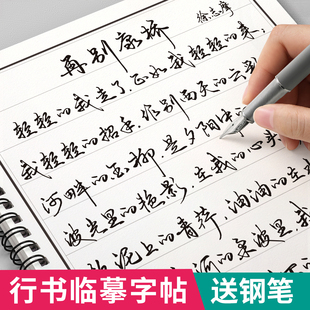 再别康桥
徐志摩
轻轻的我走了,正如我轻轻的来,
我轻轻的招手,作别西天的云彩
河畔的金柳,是夕阳中
波光里的艳影,在我的心头
泥上的青荇,油油的在
的柔波里我
行书临摹字帖
送钢笔